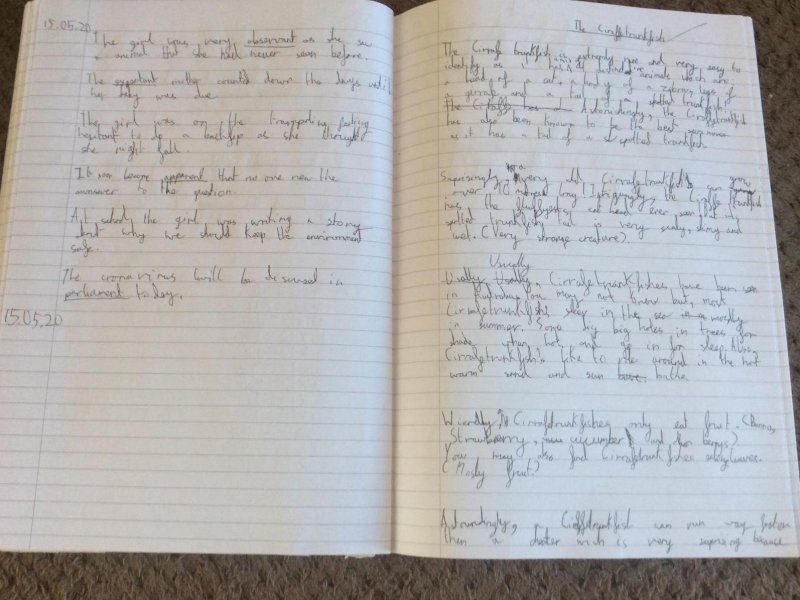 15.05.20
The girl was very observant as she saw
a animal that she had never seen before.
The expectant mother counted down the days until
her baby was due.
The girl was on the trampoline feeling
hesitant to do a backflip as she thought
she might fall.
It now became apparent that no one new the
answer to the question.
At school the girl was writing a story
about why we should keep the environment
safe.
The cronavirus will be discused in
parliament today.
15.05.20
The Ciraffetrunkfish
The Ciraffe trunkfish is extremely rare and very easy to
identify as it has animals which are
a head of a cat, a body of a zebra, legs of
a giraffe and a tail of a spotted trunkfish.
The Ciraffe has a Astonishingly, the Ciraffetrunkfish
has also been known to be the best swimmer
as it has a tail of a spotted trunkfish
Suprisingly, a very old Ciraffetrunkfish can grow
over 10 metres long! Intriguingly, the Ciraffe trunkfish
has the fluffyest cat head ever seen but its
spotted trunkfish tail is very scaly, slimy and
wet. (Very strange creature).
Usually
Usally Usally, Ciraffetrunkfishes have been seen
in Australia. You may not know but, most
Ciraffetrunkfish's sleep in the sea mostly
in summer. Some dig big holes in trees for
shade when hot and go in for sleep. Also,
Ciraffetrunkfish's like to around in the hot
warm sand and sun bathe
Wierdly, Ciraffetrunkfishes only eat fruit. (Banana,
Strawberry, cucumber and berrys)
You may also find Ciraffetrunkfishes eating leaves.
(Mostly fruit!)
Astoundingly, a Ciraffetrunkfish can run way faster
then a cheter wich is very suprising because